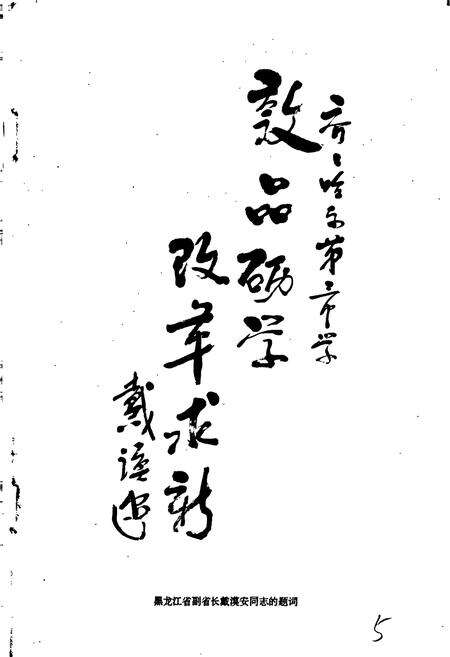 齐々哈尔第一中学
敦品砺学
改革求新
戴谟安
黑龙江省副省长戴谟安同志的题词
5